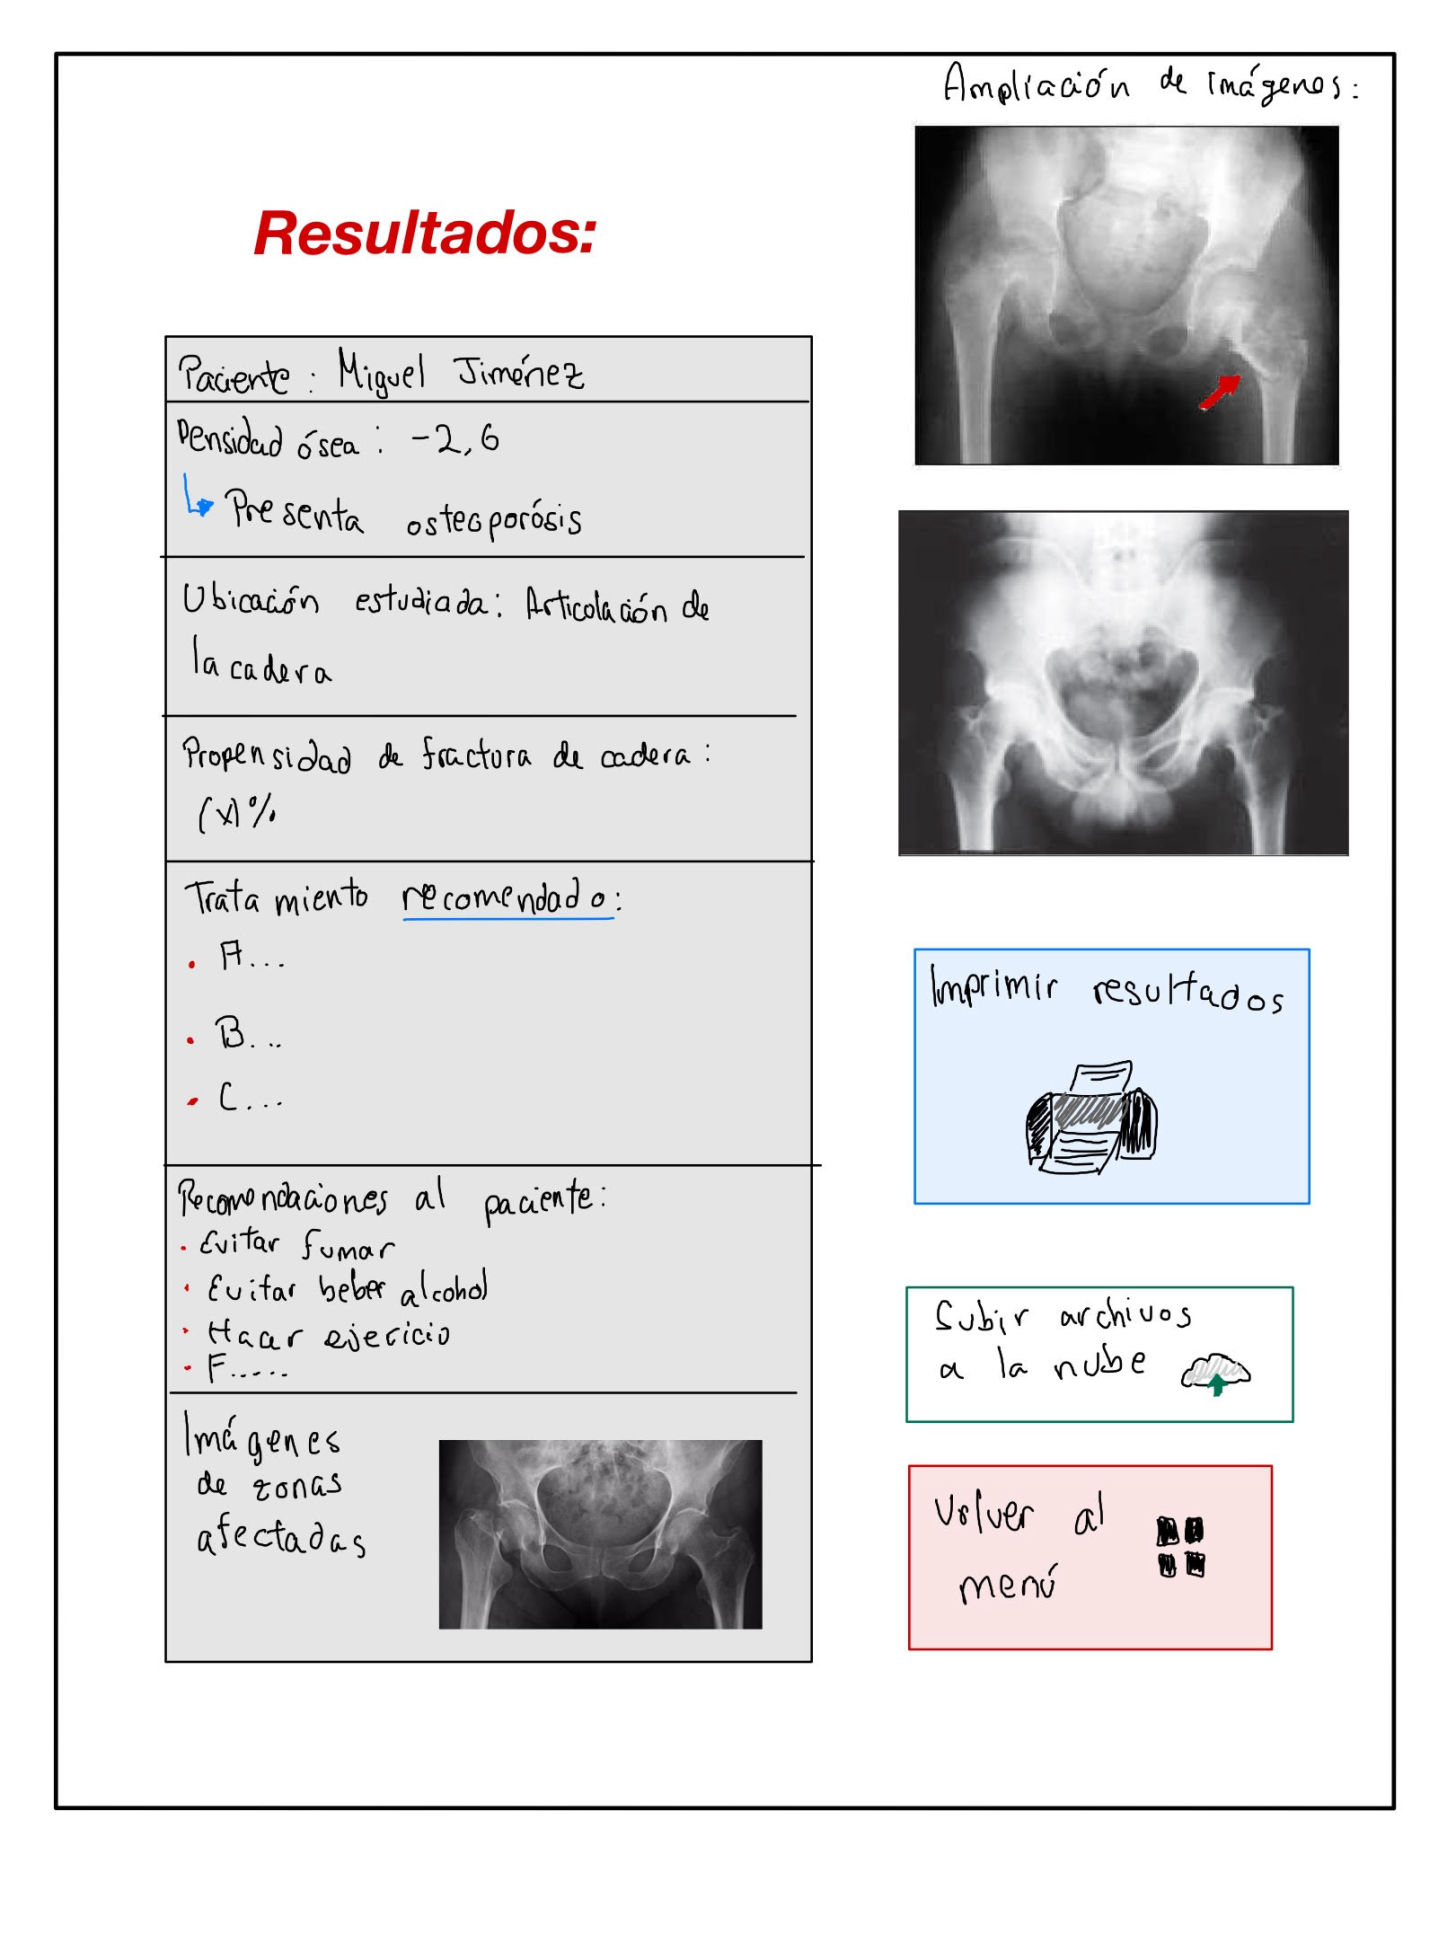 Ampliación de imágenes:
Resultados:
Paciente: Miguel Jiménez
Densidad ósea: -2,6
Presenta osteoporósis
Ubicación estudiada: Articulación de
la cadera
Propensidad de fractura de cadera:
(x)%
Tratamiento recomendado:
• A...
• B...
• C...
Recomendaciones al paciente:
• Evitar fumar
• Evitar beber alcohol
• Hacer ejericio
• F.....
Imágenes
de zonas
afectadas
Imprimir resultados
Subir archivos
a la nube
Volver al
menú